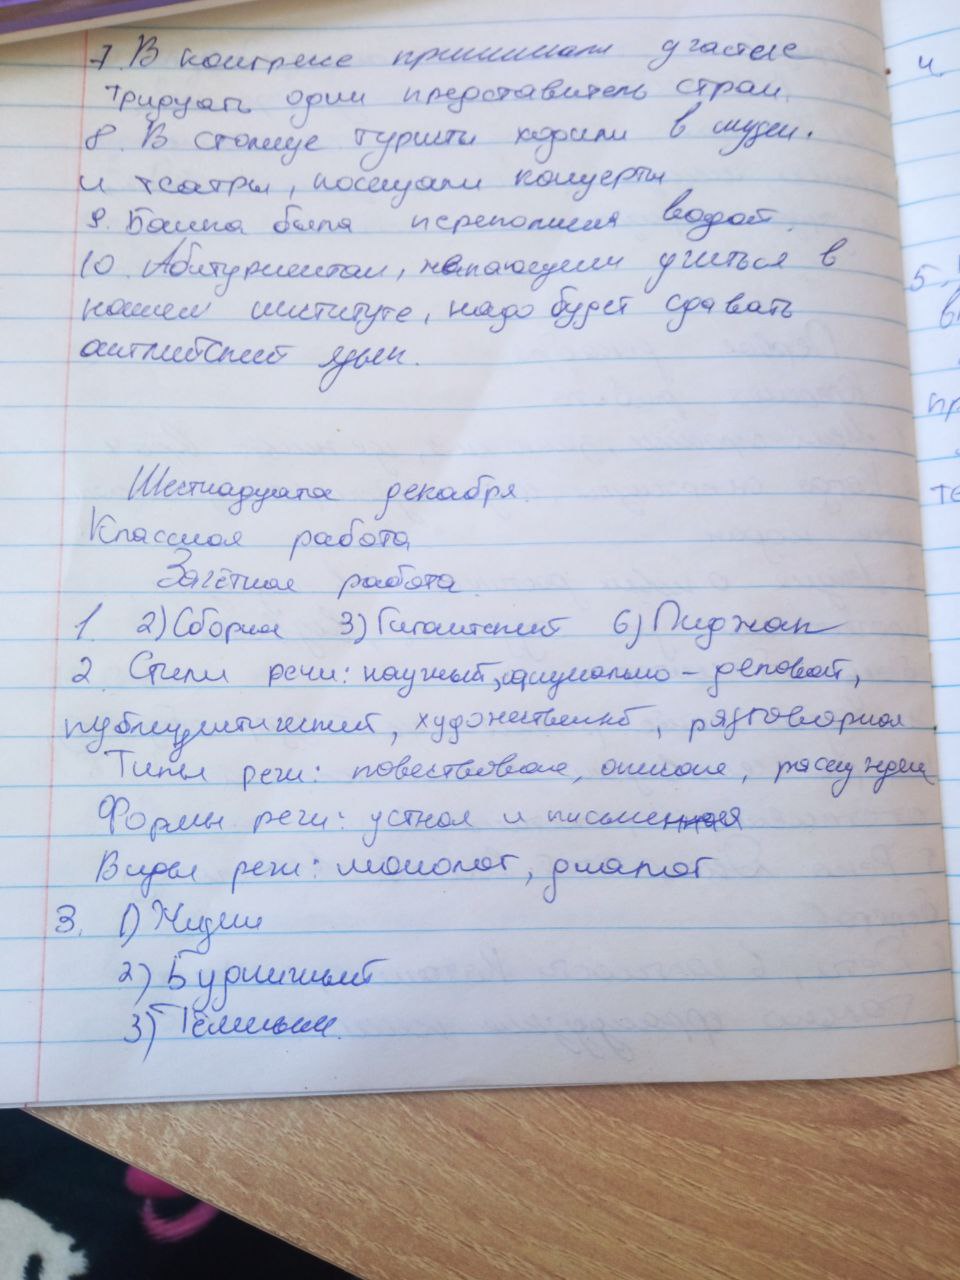 7. В конгрессе принимали участие
тридцать один представитель стран.
8. В столице туристы ходили в музеи.
и театры, посещали концерты
9. Башня была переполнена водой.
10. Абитуриентам, желающим учиться в
нашем институте, надо будет сдавать
английский язык.
Шестнадцатое декабря.
Классная работа
Зачётная работа.
1. 2) Сборная 3) Гигантский 6) Пиджак
2. Стили речи: научный, официально - деловой,
публицистический, художественный, разговорная
Типы речи: повествование, описание, рассужден
Формы речи: устная и письменная
Виды речи: монолог, диалог
3. 1)
2) Будничный
3)
и
5.
в
пр
те